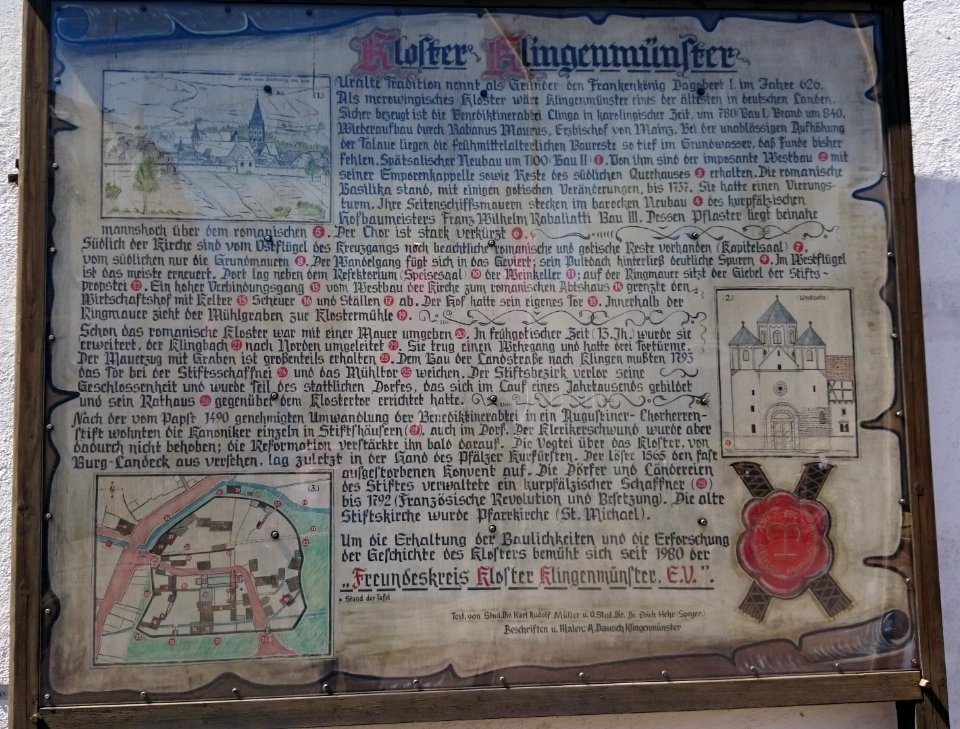 Kloster Klingenmünster
Uralte Tradition nennt als Gründer den Frankenkönig Dagobert I. im Jahre 626.
Als merowingisches Kloster wäre Klingenmünster eines der ältesten in deutschen Landen.
Sicher bezeugt ist die Benediktinerabtei Clinga in karolingischer Zeit, um 780 Bau I. Brand um 840,
Wiederaufbau durch Rabanus Maurus, Erzbischof von Mainz. Bei der unablässigen Aufhöhung
der Talaue liegen die frühmittelalterlichen Baureste so tief im Grundwasser, daß Funde bisher
fehlen. Spätsalischer Neubau um 1100 Bau II 1. Von ihm sind der imposante Westbau 2 mit
seiner Emporenkapelle sowie Reste des südlichen Querhauses 3 erhalten. Die romanische
Basilika stand, mit einigen gotischen Veränderungen, bis 1737. Sie hatte einen Vierungs-
turm. Ihre Seitenschiffsmauern stecken im barocken Neubau 4 des kurpfälzischen
Hofbaumeisters Franz Wilhelm Rabaliatti Bau III. Dessen Pflaster liegt beinahe
mannshoch über dem romanischen 5. Der Chor ist stark verkürzt 6.
Südlich der Kirche sind vom Ostflügel des Kreuzgangs noch beachtliche romanische und gotische Reste vorhanden (Kapitelsaal) 7,
vom südlichen nur die Grundmauern 8. Der Wandelgang fügt sich in das Geviert; sein Pultdach hinterließ deutliche Spuren 9. Im Westflügel
ist das meiste erneuert. Dort lag neben dem Refektorium (Speisesaal) 10 der Weinkeller 11; auf der Ringmauer sitzt der Giebel der Stifts-
propstei 12. Ein hoher Verbindungsgang 13 vom Westbau der Kirche zum romanischen Abtshaus 14 grenzte den
Wirtschaftshof mit Kelter 15 Scheuer 16 und Ställen 17 ab. Der Hof hatte sein eigenes Tor 18. Innerhalb der
Ringmauer zieht der Mühlgraben zur Klostermühle 19.
Schon das romanische Kloster war mit einer Mauer umgeben 20. In frühgotischer Zeit (13. Jh.) wurde sie
erweitert, der Klingbach 21 nach Norden umgeleitet 22. Sie trug einen Wehrgang und hatte drei Tortürme.
Der Mauerzug mit Graben ist großenteils erhalten 23. Dem Bau der Landstraße nach Klingen mußten 1793
das Tor bei der Stiftsschaffnei 24 und das Mühltor 25 weichen. Der Stiftsbezirk verlor seine
Geschlossenheit und wurde Teil des stattlichen Dorfes, das sich im Lauf eines Jahrtausends gebildet
und sein Rathaus 26 gegenüber dem Klostertor errichtet hatte.
Nach der vom Papst 1490 genehmigten Umwandlung der Benediktinerabtei in ein Augustiner-Chorherren-
stift wohnten die Kanoniker einzeln in Stiftshäusern (27), auch im Dorf. Der Klerikerschwund wurde aber
dadurch nicht behoben; die Reformation verstärkte ihn bald darauf. Die Vogtei über das Kloster, von
Burg-Landeck aus versehen, lag zuletzt in der Hand des Pfälzer Kurfürsten. Der löste 1565 den fast
ausgestorbenen Konvent auf. Die Dörfer und Ländereien
des Stiftes verwaltete ein kurpfälzischer Schaffner (28)
bis 1792 (Französische Revolution und Besetzung). Die alte
Stiftskirche wurde Pfarrkirche (St. Michael).
Um die Erhaltung der Baulichkeiten und die Erforschung
der Geschichte des Klosters bemüht sich seit 1980 der
„Freundeskreis Kloster Klingenmünster, E.V.".
• Stand der Tafel
Text: von Stud.Dir. Karl Rudolf Müller u. O.Stud.Dir. Dr. Erich Hehr-Speyer
Beschriften u. Malen: A. Dausch Klingenmünster
(1.)
(2.)
(Westseite)
(3.)